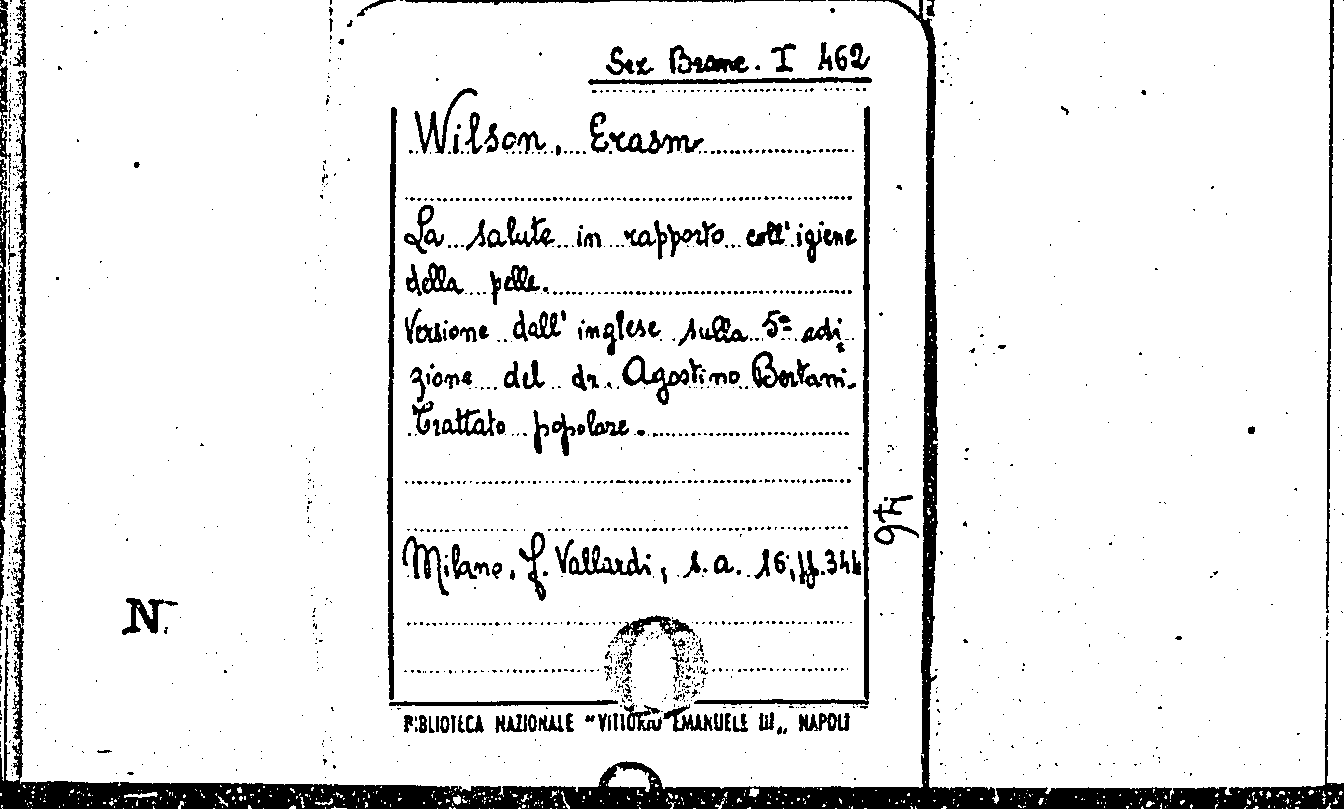 Sez Branc. I 462
Wilson, Erasm
La salute in rapporto coll'igiene
della pelle.
Versione dall'inglese sulla 5ª edi
zione del dr. Agostino Bertani.
Trattato popolare.
Milano, F. Vallardi, s.a. 16, pp. 344
46
N
BIBLIOTECA NAZIONALE "VITTORIO EMANUELE III„ NAPOLI